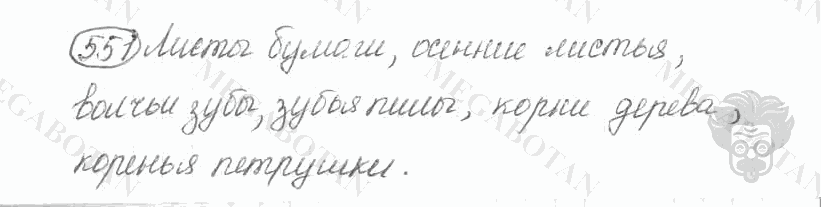 551 Листы бумаги, осенние листья,
волчьи зубы, зубья пилы, корни дерева,
коренья петрушки.
MEGABOTAN